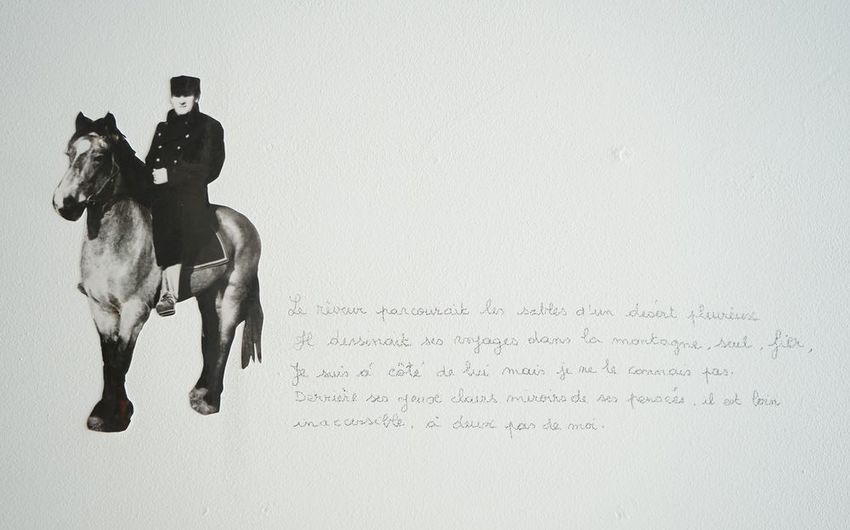 Le rêveur parcourait les sables d'un desért pleureux
Il dessinait ses voyages dans la montagne, seul, fier,
Je suis á côté de lui mais je ne le connais pas.
Derrière ses yeux clairs miroirs de ses pensées, il est loin
inaccessible, à deux pas de moi.